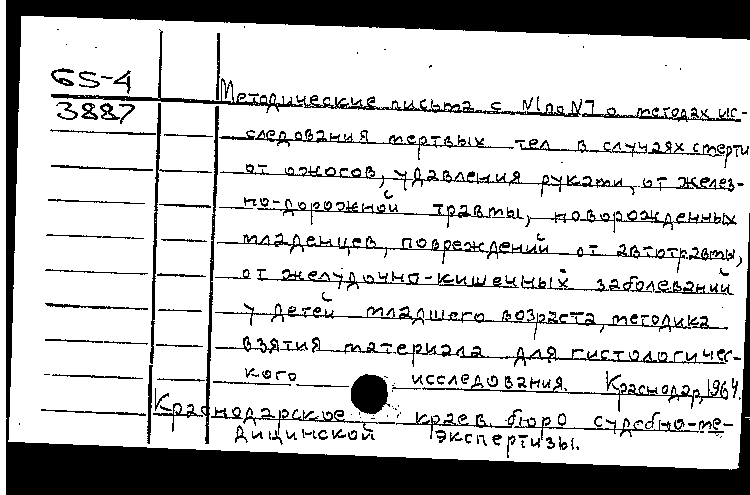 65-4
3887
Методические письма с №1 по №7 о методах ис-
следования мертвых тел в случаях смерти
от ожогов, удавления руками, от желез-
но-дорожной травмы, новорожденных
младенцев, повреждений от автотравмы,
от желудочно-кишечных заболеваний
у детей младшего возраста, методика
взятия материала для гистологичес-
кого исследования. Краснодар, 1964.
Краснодарское краев. бюро судебно-ме-
дицинской экспертизы.